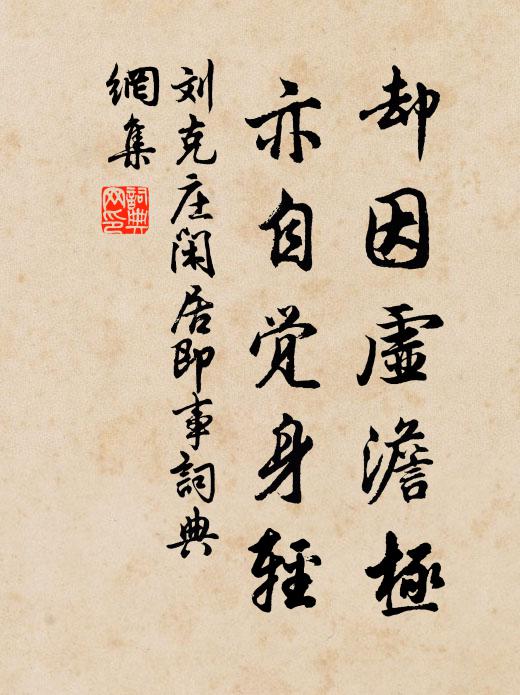 却因虚澹極
亦自觉身輕
刘克庄闲居即事詞典
網集
詞典
网印